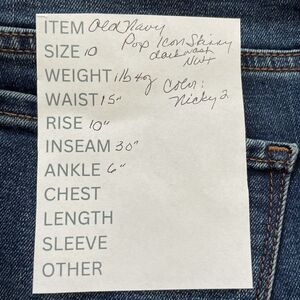 ITEM Old Navy
Pop Icon Skinny
dark wash
NWT
SIZE 10
WEIGHT 1lb 4oz
Color:
Nicky 2
WAIST 15"
RISE 10"
INSEAM 30"
ANKLE 6"
CHEST
LENGTH
SLEEVE
OTHER